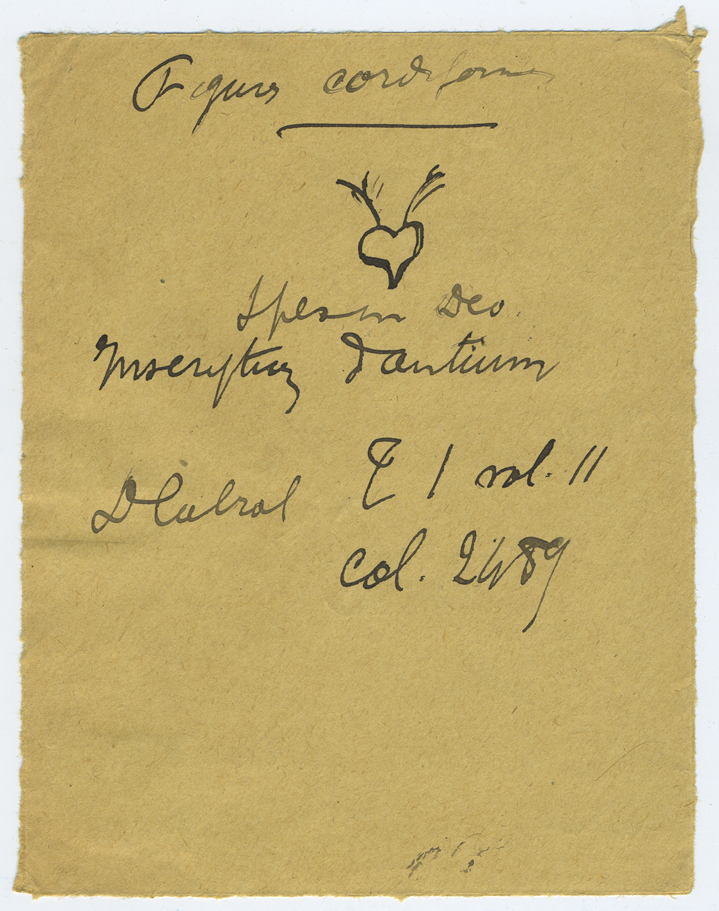 Figures cordiformes
Spes in Deo
Inscription d'Antium
D Cabrol T 1 vol. 11
col. 2489